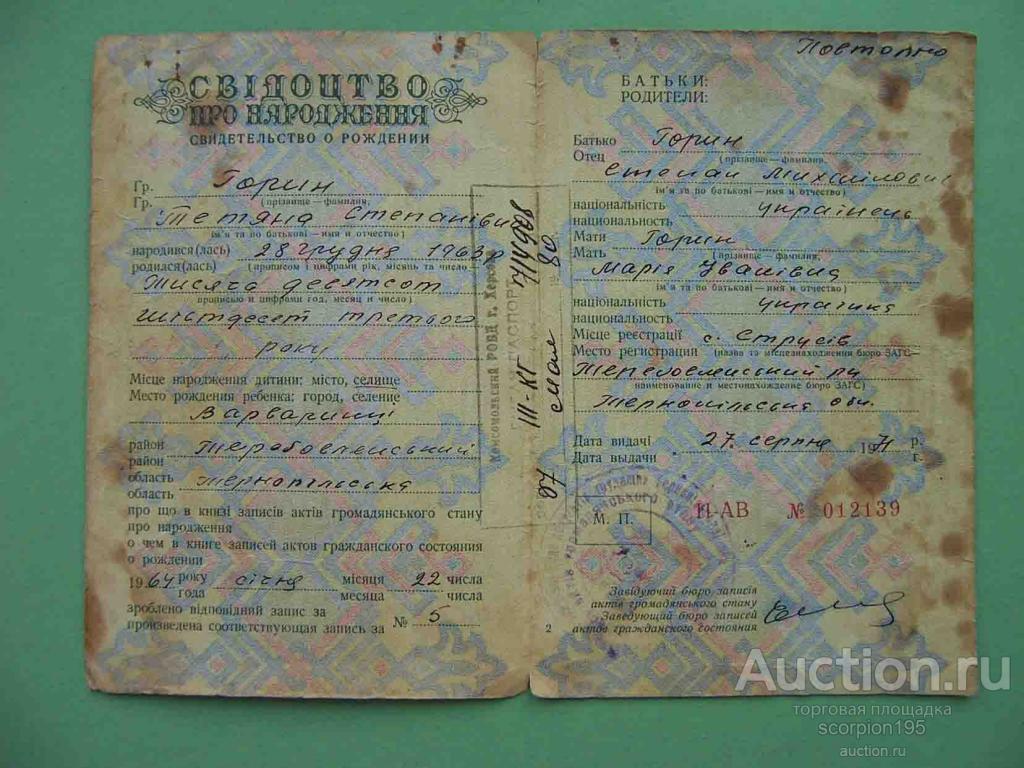 СВІДОЦТВО
ПРО НАРОДЖЕННЯ
СВИДЕТЕЛЬСТВО О РОЖДЕНИИ
Гр. Горин
Гр. (прізвище — фамилия,
Тетяна Степанівна
ім'я та по батькові — имя и отчество)
народився(лась) 28 грудня 1963 р
родился(лась) (прописом і цифрами рік, місяць та число —
Тисяча десятсот
прописью и цифрами год, месяц и число)
шістдесят третього
року
Місце народження дитини: місто, селище
Место рождения ребенка: город, селение
Варваринці
район Теребовлянський
район
область Тернопільська
область
про що в книзі записів актів громадянського стану
про народження
о чем в книге записей актов гражданского состояния
о рождении
1964 року січня місяця 22 числа
года месяца числа
зроблено відповідний запис за
произведена соответствующая запись за № 5
Комсомольский РОВД г. Херсон
ПАСПОРТ
III-КГ
80
07
Повторно
БАТЬКИ:
РОДИТЕЛИ:
Батько Горин
Отец (прізвище — фамилия,
Степан Михайлович
ім'я та по батькові — имя и отчество)
національність українець
национальность
Мати Горин
Мать (прізвище — фамилия,
Марія Іванівна
ім'я та по батькові — имя и отчество)
національність українка
национальность
Місце реєстрації с. Струсів
Место регистрации (назва та місцезнаходження бюро ЗАГС —
Теребовлянський р-н
наименование и местонахождение бюро ЗАГС)
Тернопільська обл.
Дата видачі 27 серпня 1971 р.
Дата выдачи г.
М. П. II-АВ № 012139
Завідуючий бюро записів
актів громадянського стану
Заведующий бюро записей
2 актов гражданского состояния
Auction.ru
торговая площадка
scorpion195
auction.ru